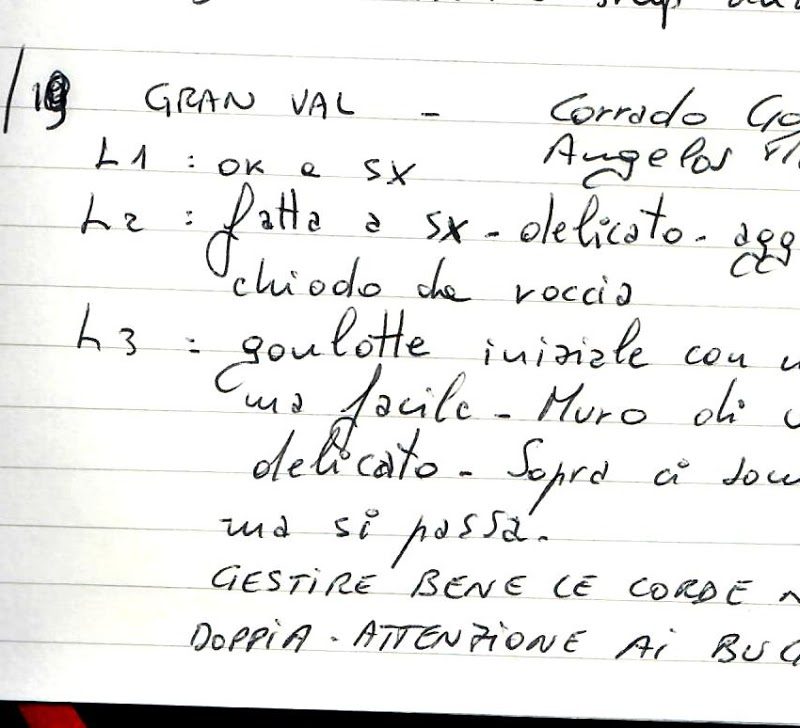 /19 GRAN VAL - Corrado Go
Angelos
L1 : OK a SX
L2 : fatta a SX - delicato - agg
chiodo da roccia
L3 : goulotte iniziale con
ma facile - Muro di
delicato - Sopra ci son
ma si passa.
GESTIRE BENE LE CORDE N
DOPPIA - ATTENZIONE AI BUC